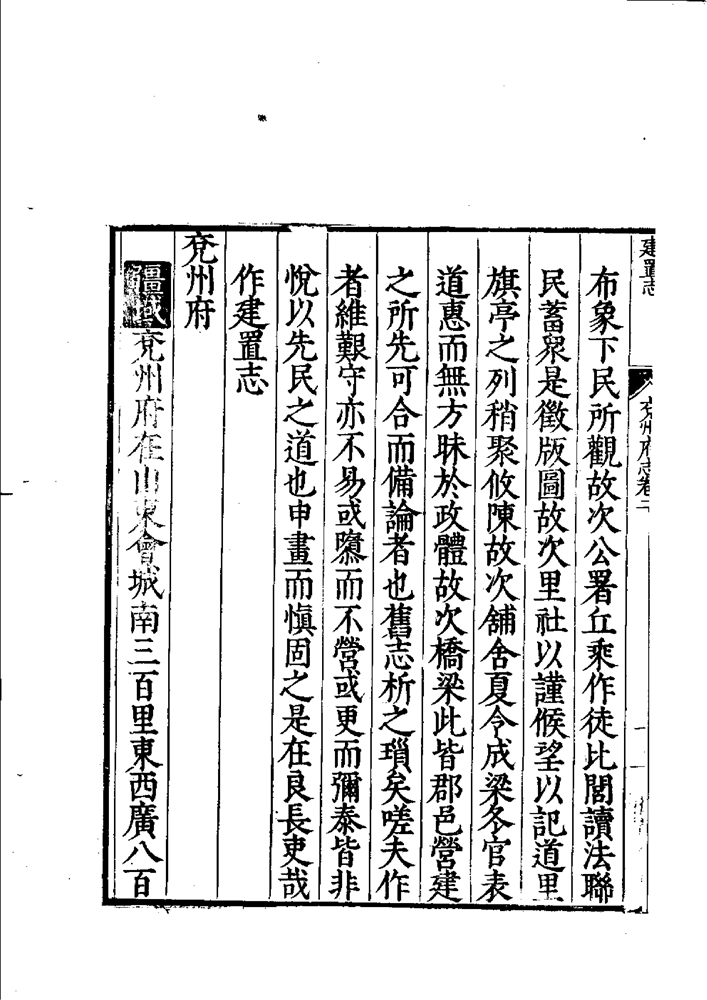 建置志
兖州府志卷二
布象下民所觀故次公署丘乘作徒比閭讀法聯
民蓄衆是徵版圖故次里社以謹候望以記道里
旗亭之列稍聚攸陳故次舖舍夏令成梁冬官表
道惠而無方昧於政體故次橋梁此皆郡邑營建
之所先可合而備論者也舊志析之瑣矣嗟夫作
者維艱守亦不易或隳而不營或更而彌泰皆非
悅以先民之道也申畫而慎固之是在良長吏哉
作建置志
兖州府
疆域兖州府在山東會城南三百里東西廣八百